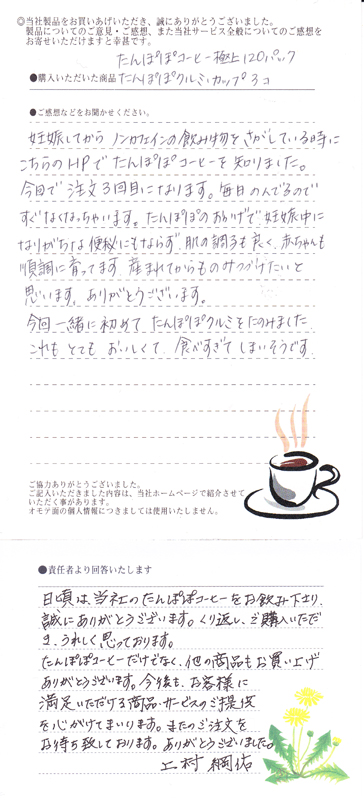 ◎当社製品をお買いあげいただき、誠にありがとうございました。
製品についてのご意見・ご感想、また当社サービス全般についてのご感想を
お寄せいただけますと幸甚です。
たんぽぽコーヒー極上120パック
●購入いただいた商品 たんぽぽクルミ・カップ 3コ
●ご感想などをお聞かせください。
妊娠してから ノンカフェインの飲み物をさがしている時に
こちらのHPで たんぽぽコーヒーを知りました。
今回で 注文3回目になります。毎日のんでるので
すぐなくなっちゃいます。たんぽぽのおかげで 妊娠中に
なりがちな便秘にもならず 肌の調子も良く、赤ちゃんも
順調に育ってます 産まれてからものみつづけたいと
思います。ありがとうございます。
今回一緒に初めて たんぽぽクルミをたのみました
これも とても おいしくて 食べすぎて しまいそうです.
ご協力ありがとうございました。
ご記入いただきました内容は、当社ホームページで紹介させて
いただく事があります。
オモテ面の個人情報につきましては使用いたしません。
●責任者より回答いたします
日頃は、当社のたんぽぽコーヒーをお飲み下さり、
誠にありがとうございます。くり返し、ご購入いただ
き、うれしく思っております。
たんぽぽコーヒーだけでなく、他の商品もお買い上げ
ありがとうございます。今後も、お客様に
満足いただける商品・サービスのご提供
を心がけてまいります。またのご注文を
お待ち致しております。ありがとうございました。
上村